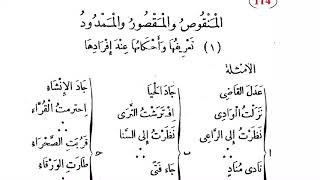 114
الْمَنْقُوصُ وَالْمَقْصُورُ وَالْمَمْدُودُ
(١) تَعْرِيفُهَا وَأَحْكَامُهَا عِنْدَ إِفْرَادِهَا
الأمثلة
عَدَلَ القَاضِي جَادَ الْحَيَا جَادَ الإِنْشَاء
نَزَلْتُ الْوَادِي افْتَرَشْتُ الثَّرَى احترمت القُرَّاء
نَظَرْتُ إلى الرَّاعِي نَظَرْتُ إلى السَّنا قَرُبَتِ الصَّحْرَاء
نَادَى مُنَادٍ جَاء فَتًى طَارَتِ الوَرْقَاء